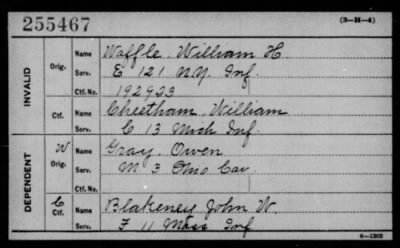 255467 (3-H-4)
INVALID
Orig.
Name Waffle, William H.
Serv. E 121 N.Y. Inf.
Ctf. No. 192923
Ctf.
Name Cheetham, William
Serv. C 13 Mich Inf.
DEPENDENT
W
Orig.
Name Gray, Owen
Serv. M 3 Ohio Cav.
C
Ctf.
Name Blakeney, John W.
Serv. F 11 Mass Inf